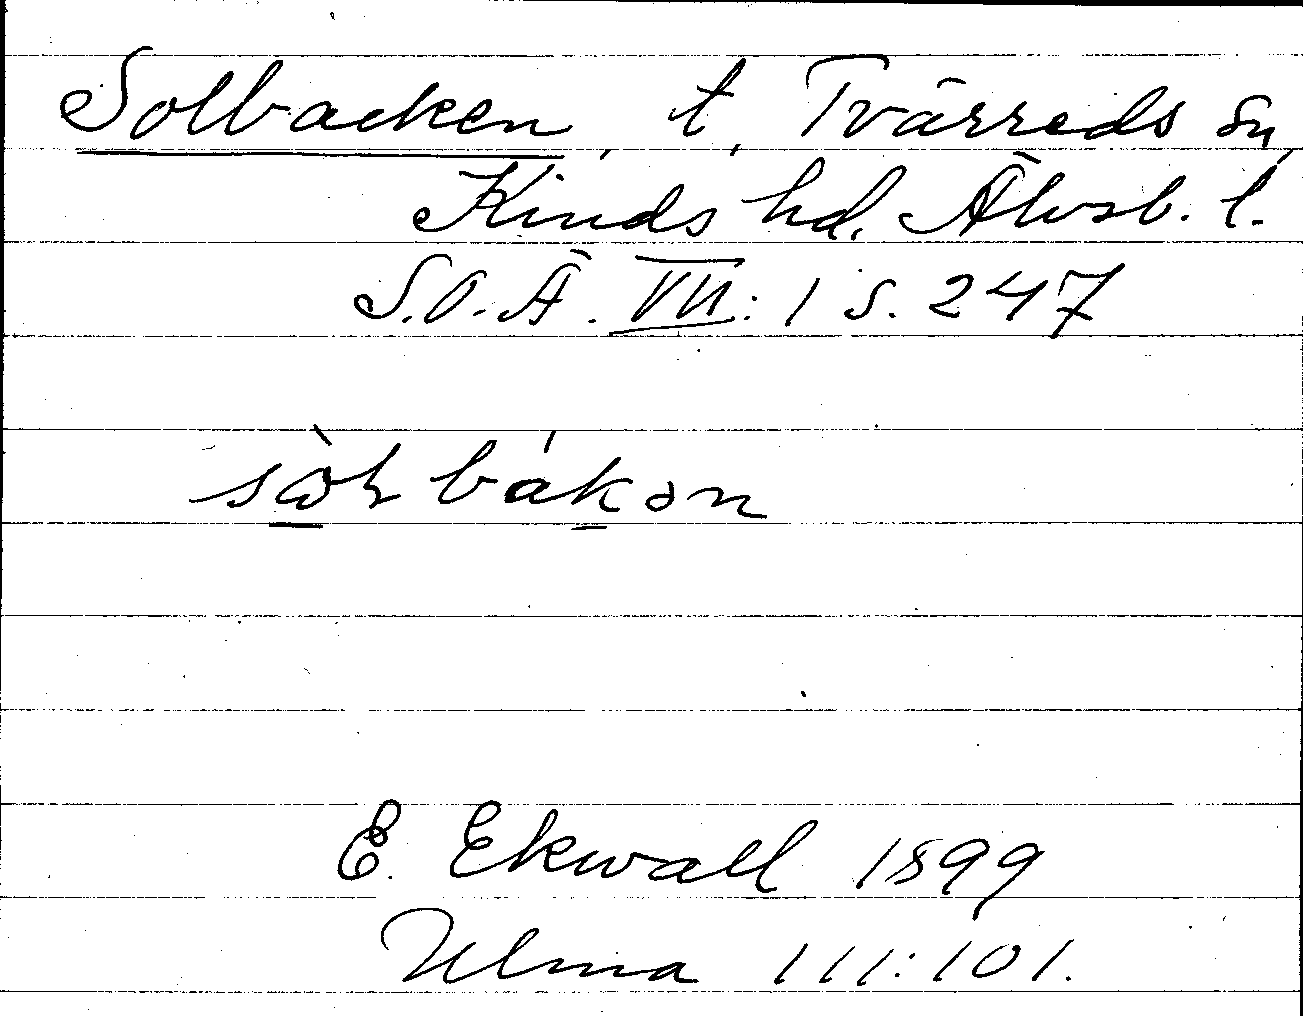 Solbacken, t, Tvärreds sn,
Kinds hd. Älvsb. l.
S.O.Ä. VII: 1 s. 247
E. Ekwall 1899
Ulma 111:101.